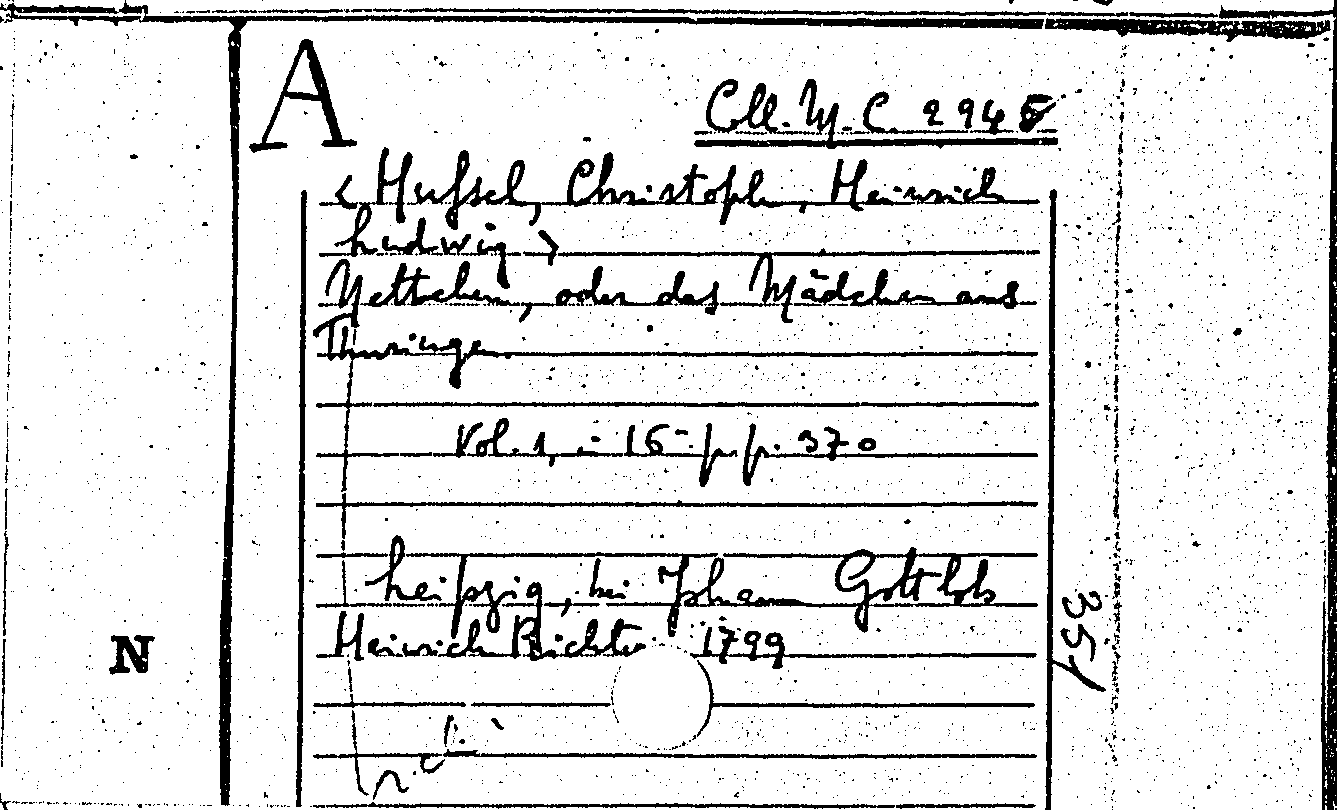 A
Coll. M. C. 2945
< Hufsel, Christoph, Heinrich
Ludwig >
Nettchen, oder das Mädchen aus
Thuringen.
Vol. 1, in 16° pp. 370
Leipzig, bei Johann Gottlob
Heinrich Richter 1799
351
N